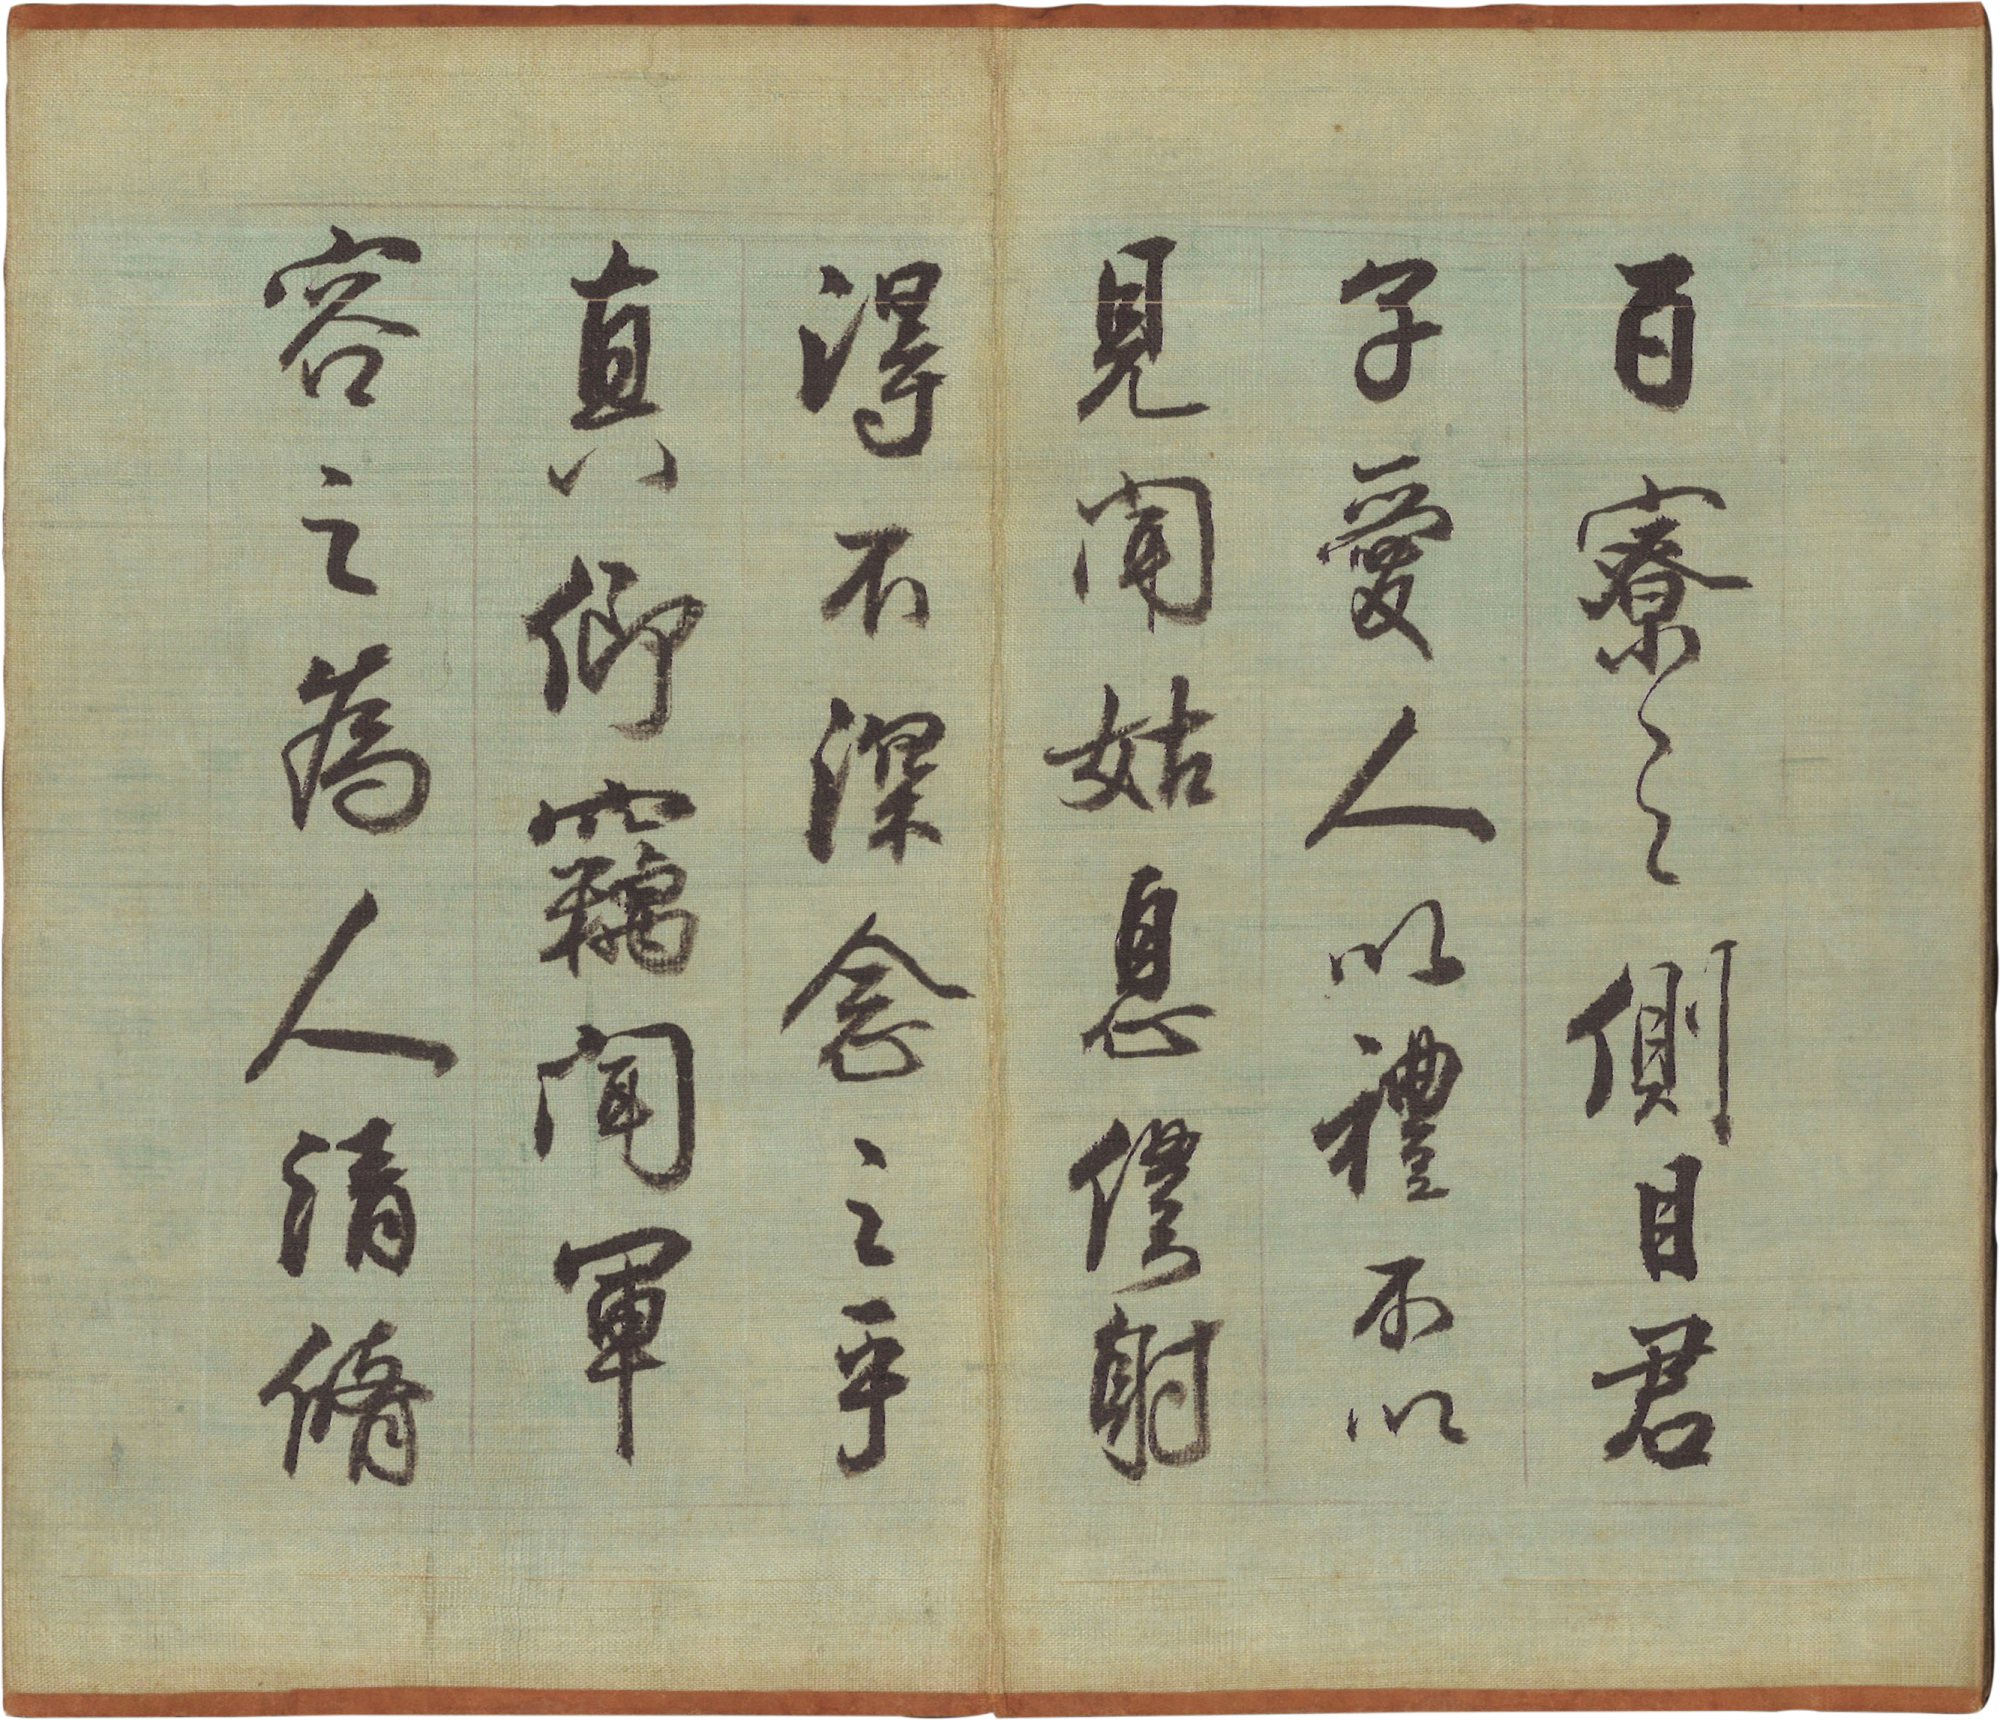 百寮之側目君
子愛人以禮不以
見聞姑息僕射
得不深念之乎
真卿竊聞軍
容之為人清脩